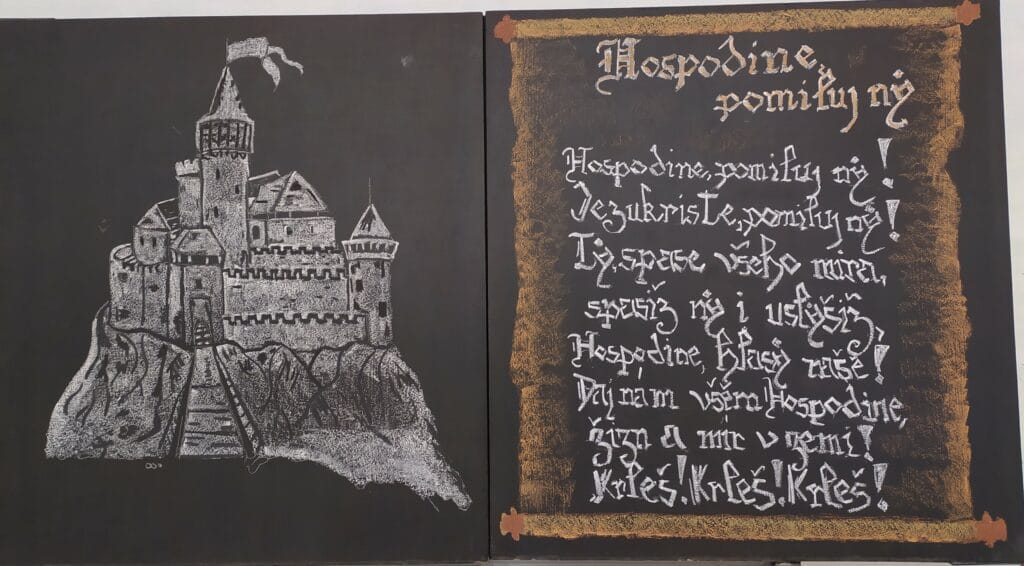 Hospodine,
pomiłuj ny
Hospodine, pomiłuj ny!
Jezukriste, pomiłuj ny!
Ty, spase všeho mira,
spasiž ny i usłyšiž,
Hospodine, hłasy naše!
Daj nám všěm Hospodine,
žizn a mír v zemi!
Krłeš! Krłeš! Krłeš!